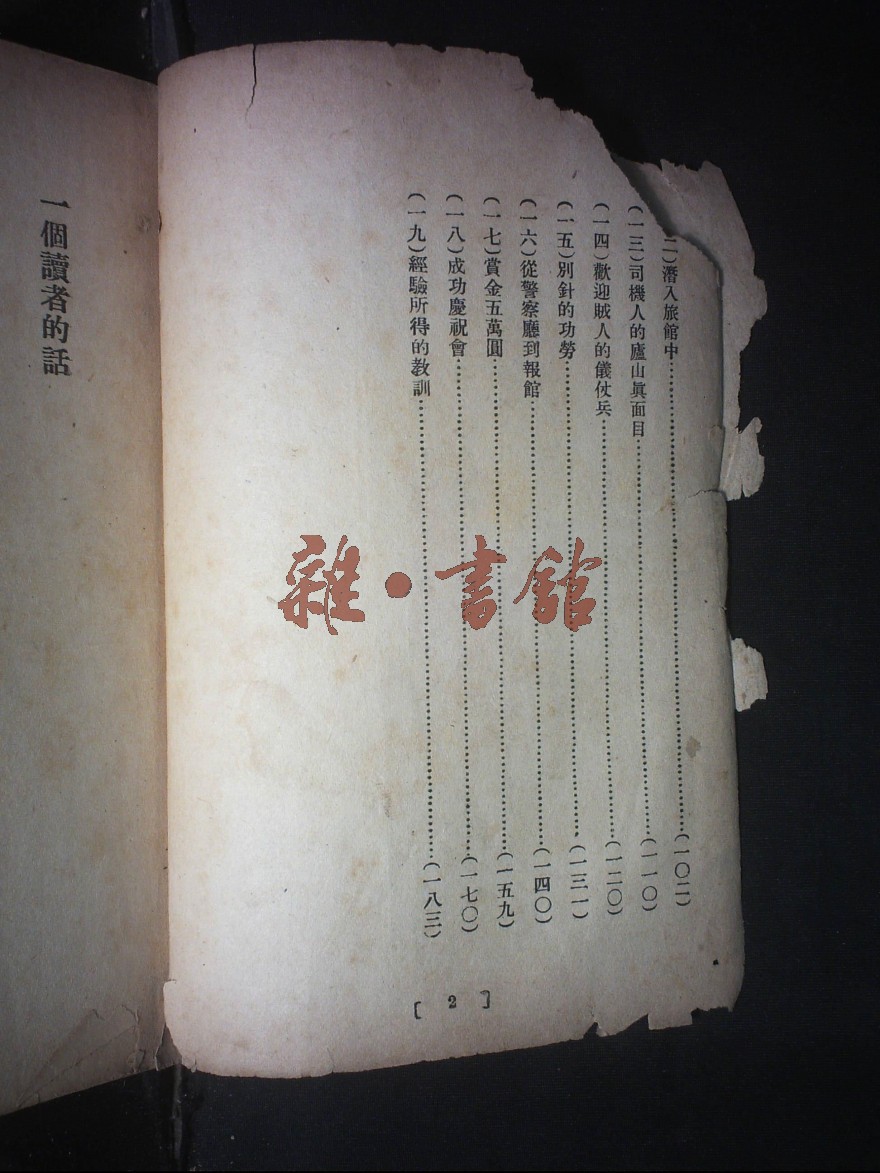 二)潛入旅館中……(一〇二)
(一三)司機人的廬山眞面目……(一一〇)
(一四)歡迎賊人的儀仗兵……(一二〇)
(一五)別針的功勞……(一三一)
(一六)從警察廳到報館……(一四〇)
(一七)賞金五萬圓……(一五九)
(一八)成功慶祝會……(一七〇)
(一九)經驗所得的教訓……(一八三)
[2]
一個讀者的話
雜・書館